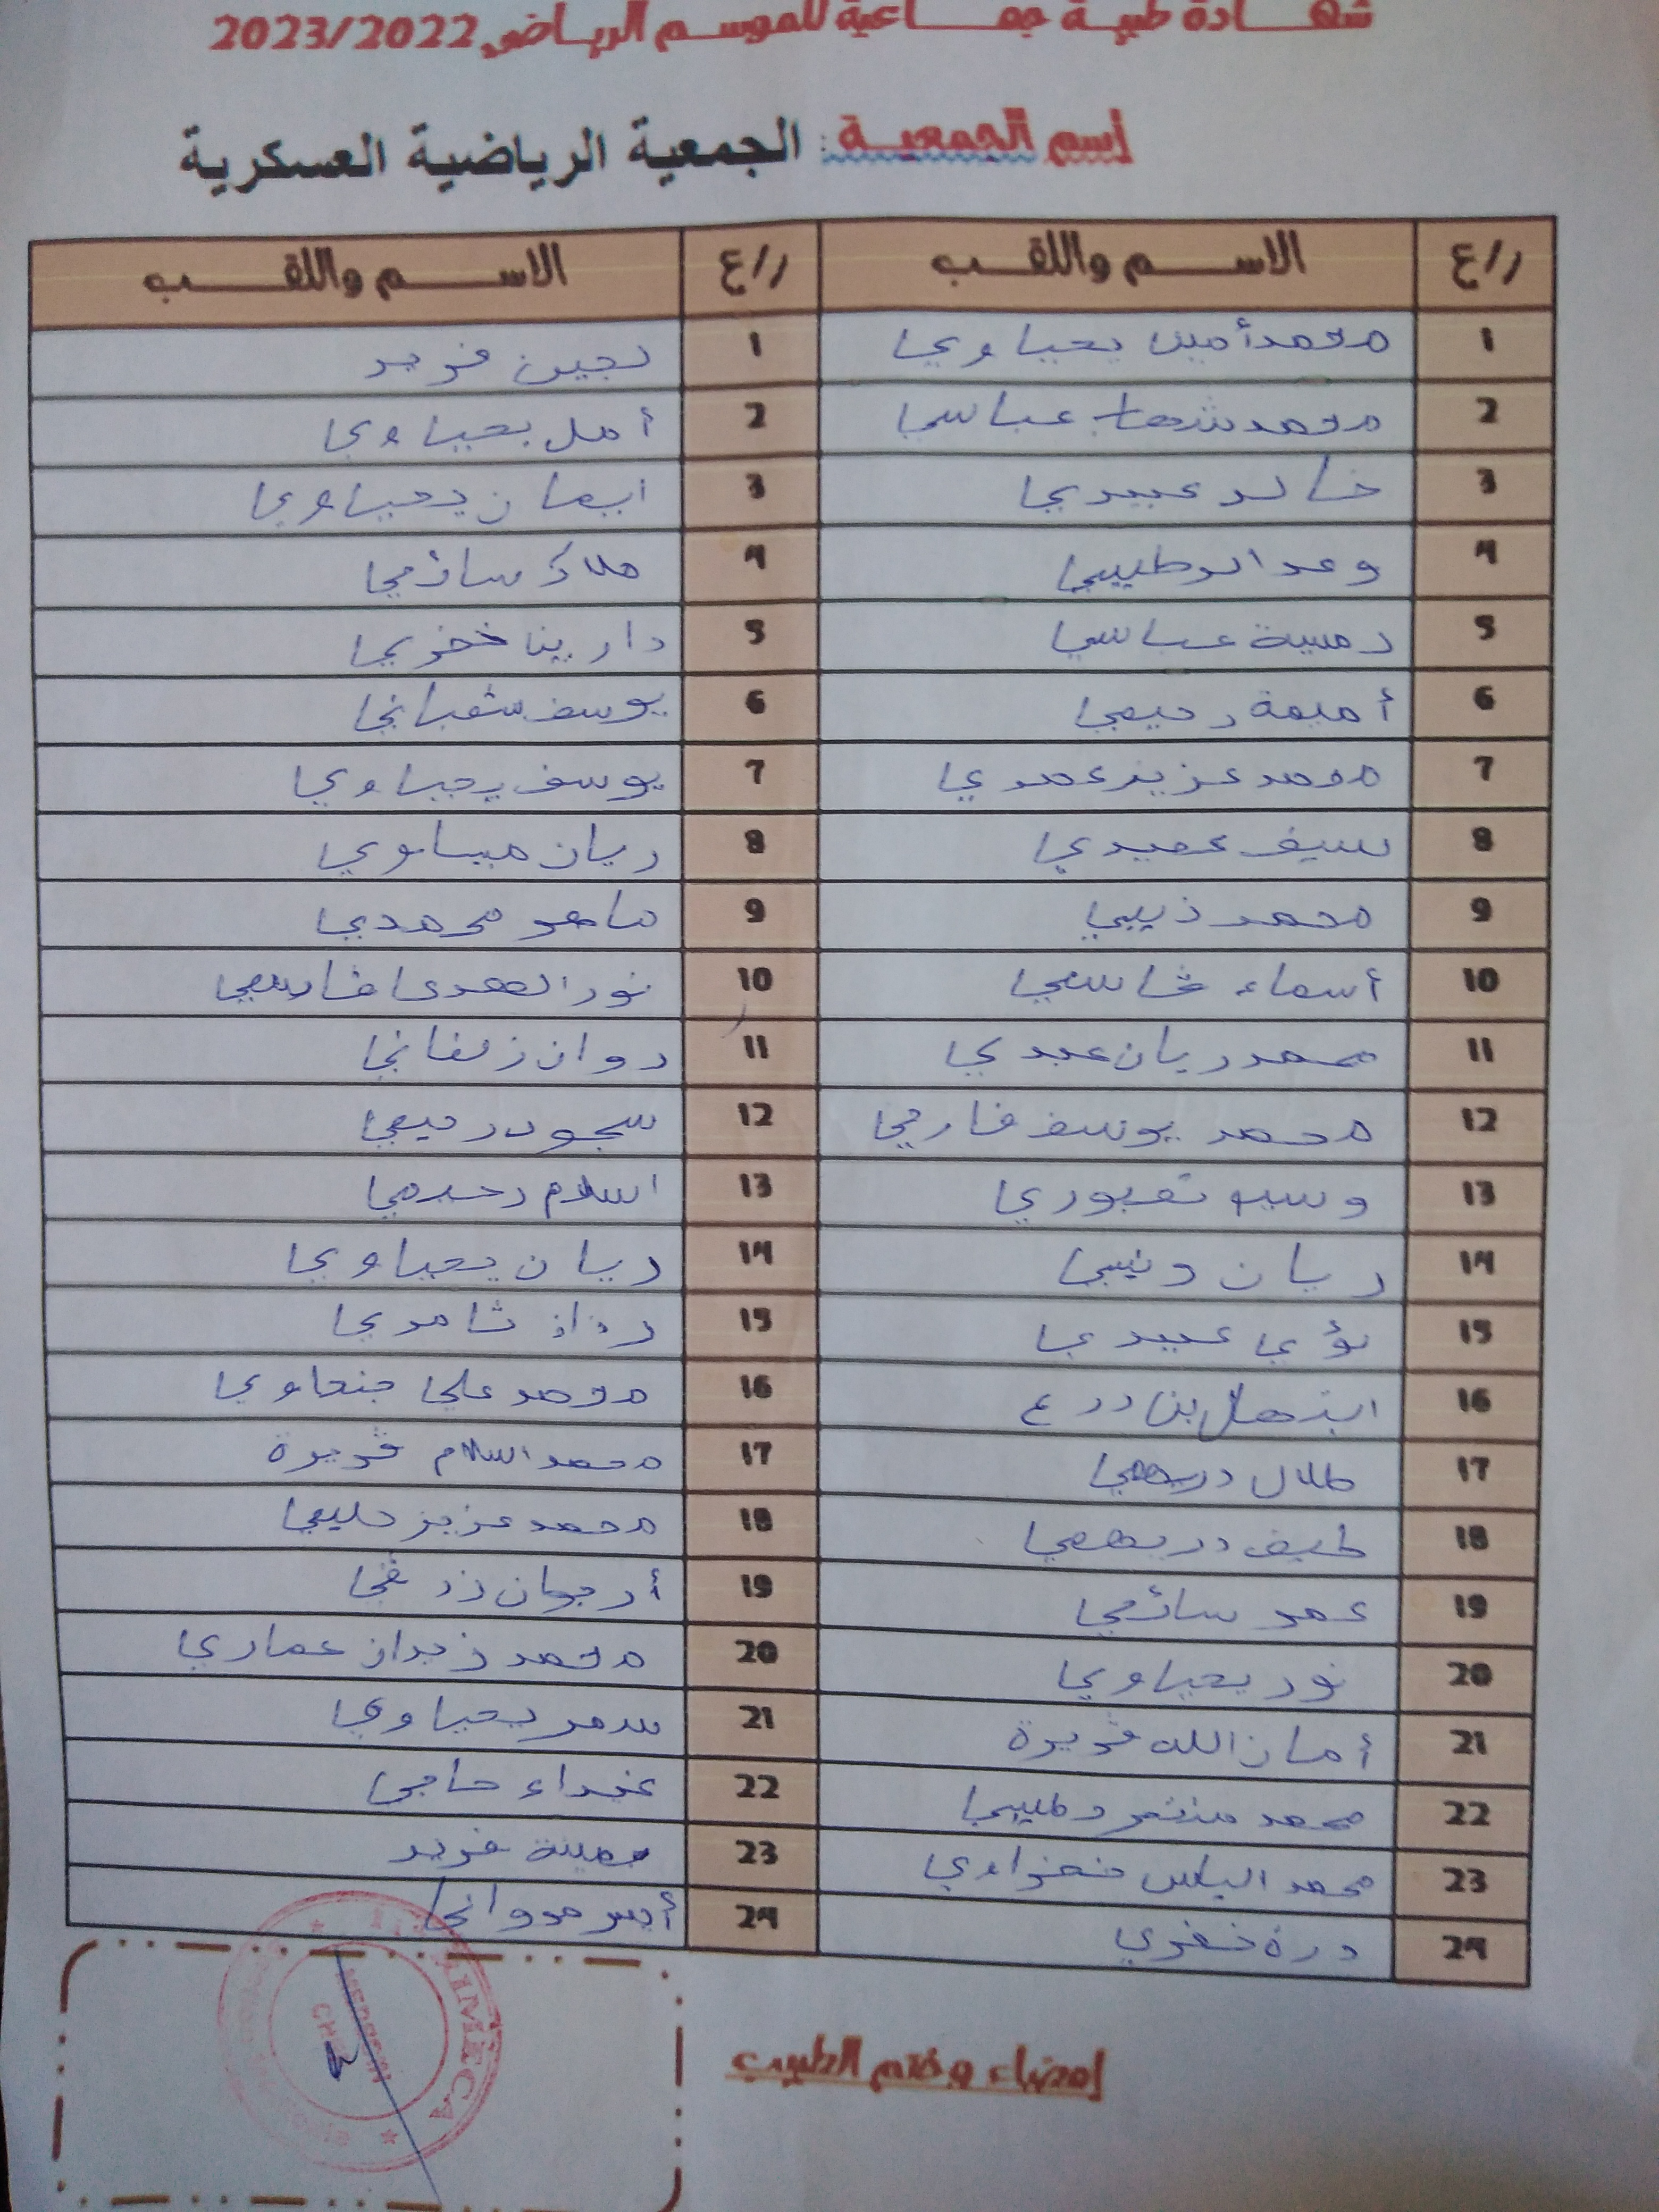 شهادة طبية جماعية للموسم الرياضي 2023/2022
إسم الجمعية : الجمعية الرياضية العسكرية
ر/ع الاسم واللقب ر/ع الاسم واللقب
1 محمد أمين يحياوي 1 لجين فريد
2 محمد شهاب عباسي 2 أمل يحياوي
3 خالد عبيدي 3 ايمان يحياوي
4 وعد الوطيبي 4 ملاك سائمي
5 رمسة عباسي 5 دارينا خضري
6 أميمة رحيمي 6 يوسف شعباني
7 محمد عزيز عمري 7 يوسف يحياوي
8 سيف عميدي 8 ريان ميساوي
9 محمد ذيبي 9 ماهر محمدي
10 أسماء قاسمي 10 نور الهدى قاسمي
11 محمد ريان عبدي 11 روان زلفاني
12 محمد يوسف قارمي 12 سجود رحيمي
13 وسيم تعبوري 13 اسلام رحيمي
14 ريان ونيسي 14 ريان يحياوي
15 لؤي عبيدي 15 رزان ثامري
16 ابتهال بن درع 16 محمد علي جنحاوي
17 طلال دريهمي 17 محمد اسلام قريرة
18 طيف دريهمي 18 محمد عزيز حليمي
19 عمر سائمي 19 أرجوان زرقي
20 نور يحياوي 20 محمد زيدان عماري
21 أمان الله قريرة 21 سمر يحياوي
22 محمد منتصر وطيبي 22 غيداء حاجي
23 محمد الياس نفزاوي 23 يمينة فريد
24 درة خضري 24 أيسر مرواني
إمضاء وختم الطبيب